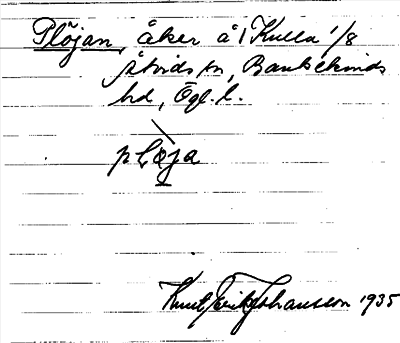 Plöjan, åker å 1 Kulla 1/8
Åtvids sn, Bankekinds
hd, Ögl. l.
plöja
Knut Erik Johansson 1935